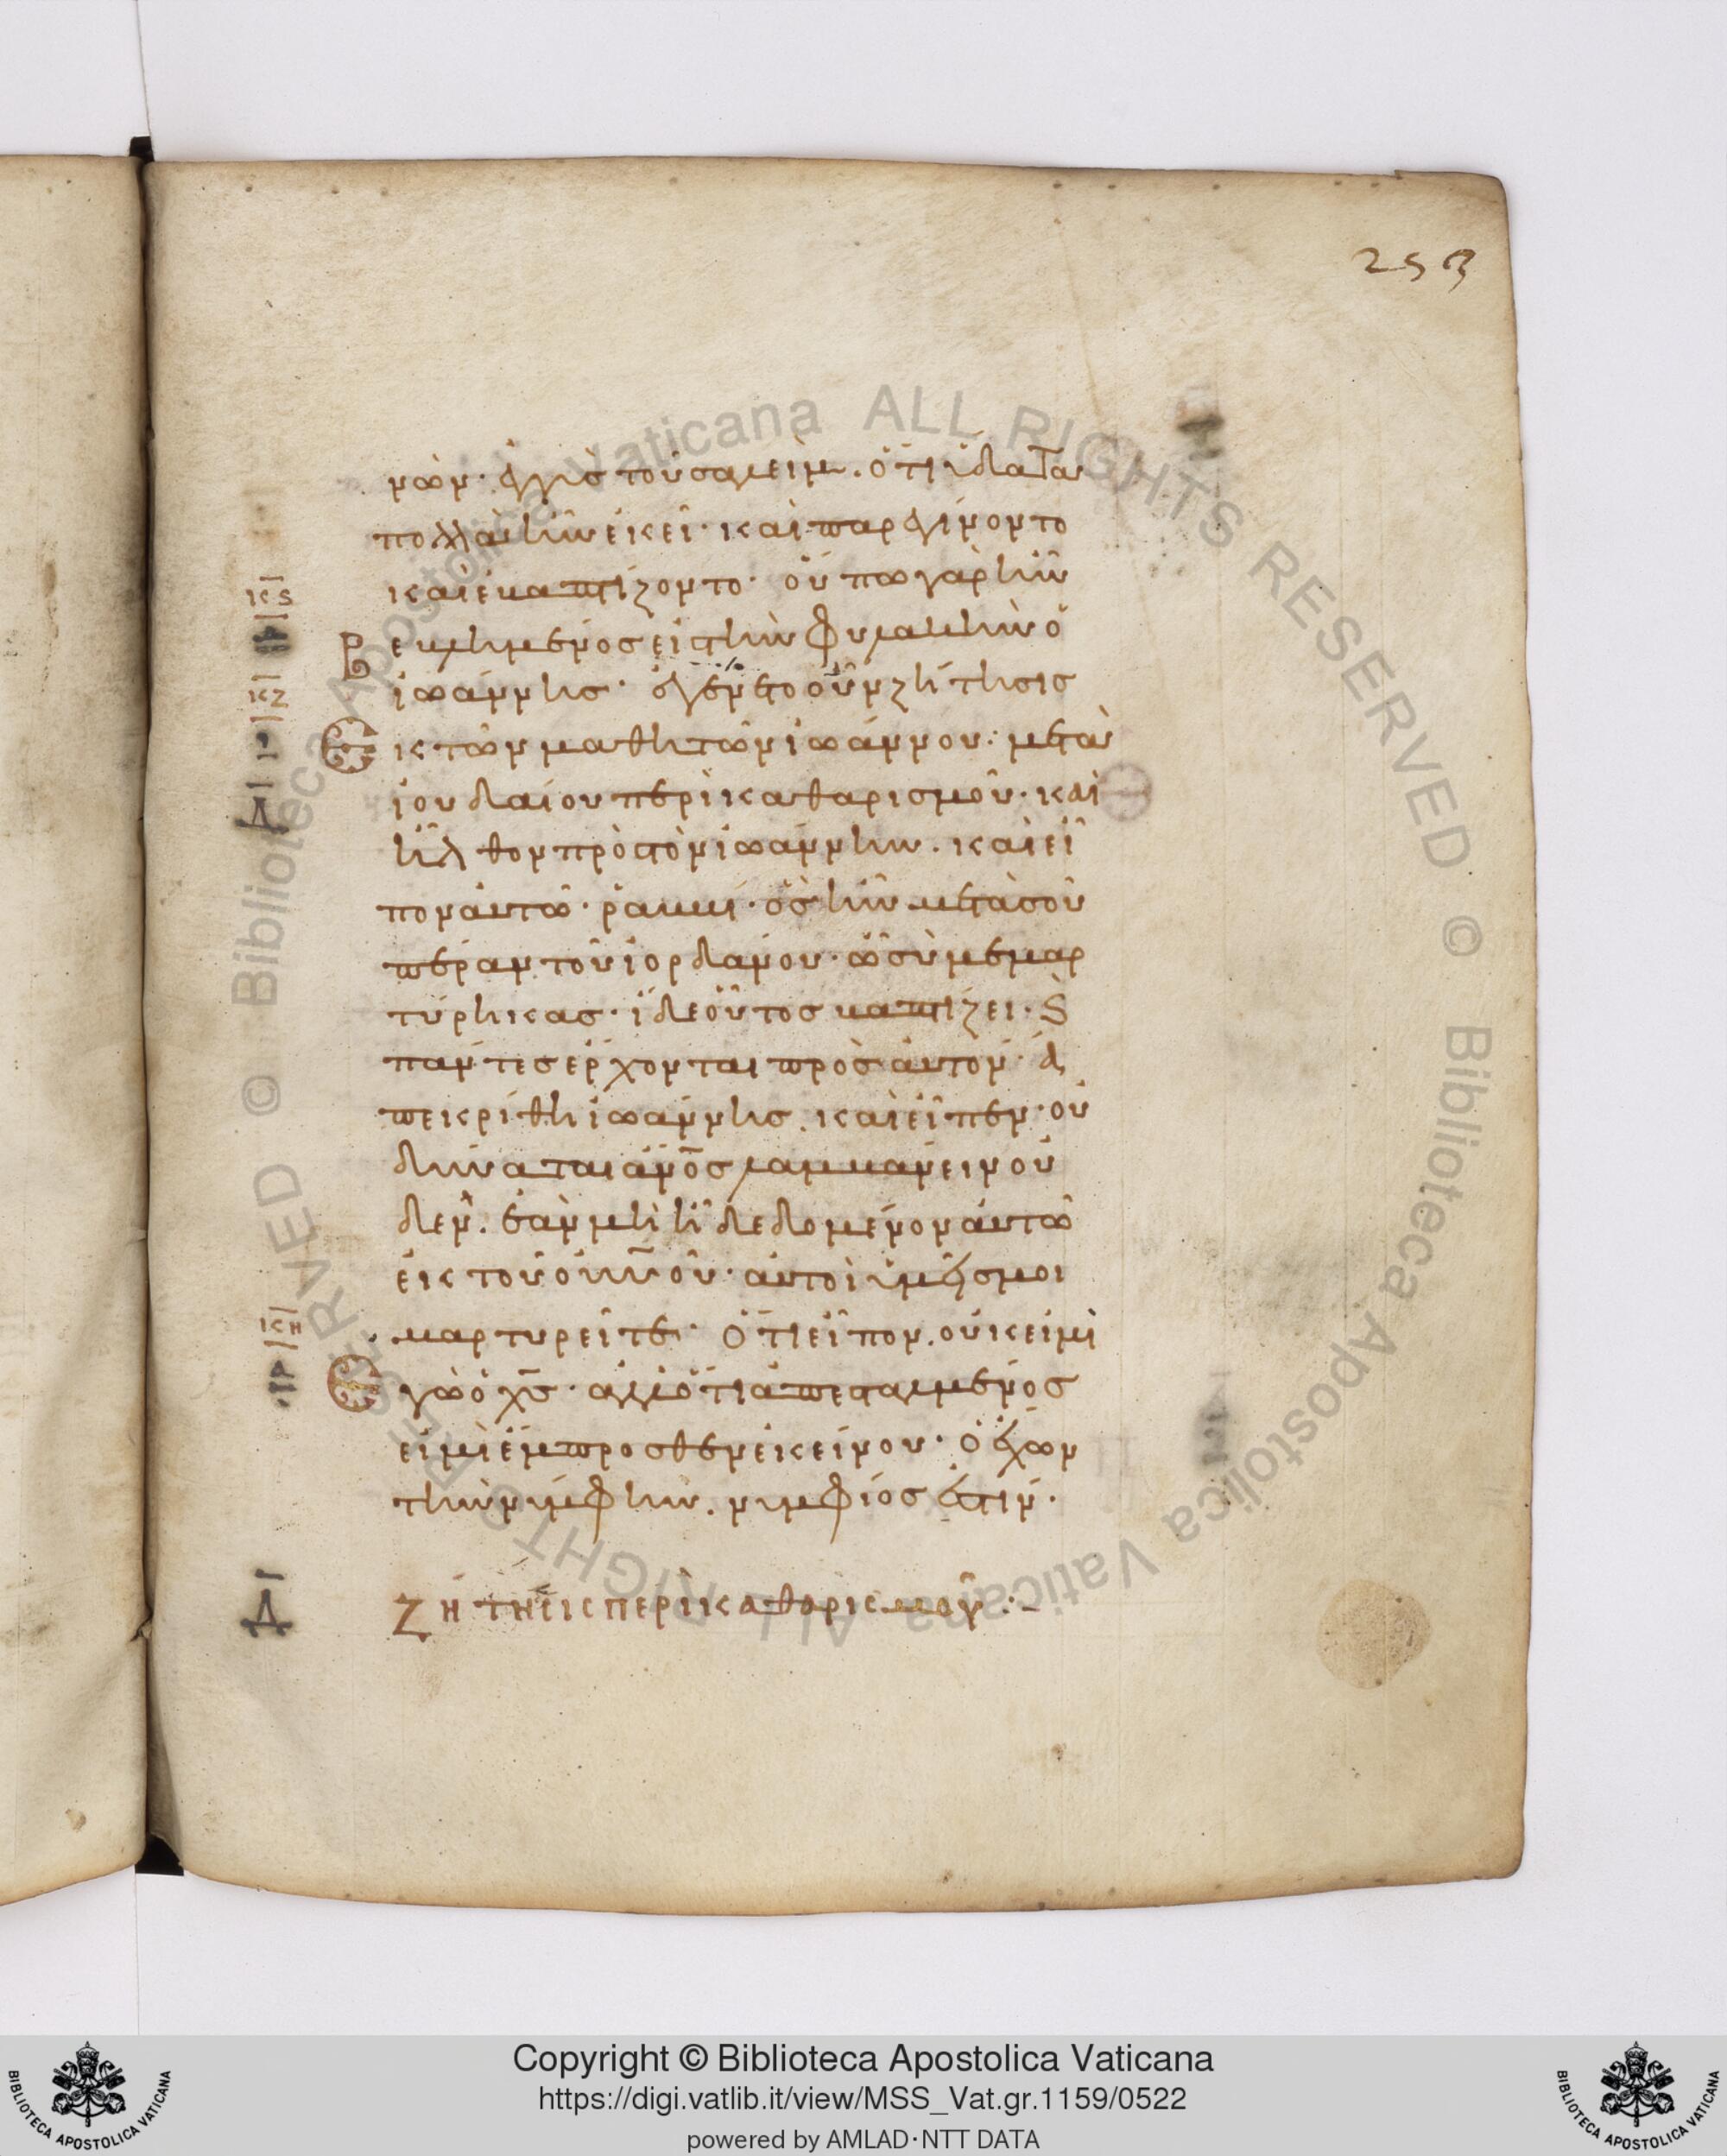 253
νῶν· ἐγγὺς τοῦ σαλείμ. ὅτι ὕδατα
πολλὰ ἦν ἐκεῖ· καὶ παρεγίνοντο
καὶ ἐβαπτίζοντο· οὔπω γὰρ ἦν
κς
βεβλημένος εἰς τὴν φυλακὴν ὁ
κζ
ἰωάννης· ἐγένετο οὖν ζήτησις
ἐκ τῶν μαθητῶν ἰωάννου· μετὰ
ἰουδαίου περὶ καθαρισμοῦ· καὶ
Δ
ἦλθον πρὸς τὸν ἰωάννην. καὶ εἶ
πον αὐτῶ· ῥαββί· ὃς ἦν μετὰ σοῦ
πέραν τοῦ ἰορδάνου· ὧ σὺ μεμαρ
τύρηκας· ἴδε οὗτος βαπτίζει· ϗ
πάντες ἔρχονται πρὸς αὐτόν· ἀ
πεκρίθη ἰωάννης. καὶ εἶπεν· οὐ
δύναται ἄνος λαμβάνειν οὐ
δέν. ἐὰν μὴ ἦ δεδομένον αὐτῶ
ἐκ τοῦ οὐνοῦ· αὐτοὶ ὑμεῖς μοι
κη
μαρτυρεῖτε· ὅτι εἶπον. οὐκ εἰμὶ
ἐγὼ ὁ χς· ἀλλ' ὅτι ἀπεσταλμένος
εἰμὶ ἔμπροσθεν ἐκείνου· ὁ ἔχων
τὴν νύμφην. νυμφίος ἐστίν·
Δ
ζήτησις περὶ καθαρισμοῦ :-
Biblioteca Apostolica Vaticana ALL RIGHTS RESERVED © Biblioteca Apostolica Vaticana ALL RIGHTS RESERVED ©
Copyright © Biblioteca Apostolica Vaticana
https://digi.vatlib.it/view/MSS_Vat.gr.1159/0522
powered by AMLAD·NTT DATA
BIBLIOTECA APOSTOLICA VATICANA
BIBLIOTECA APOSTOLICA VATICANA